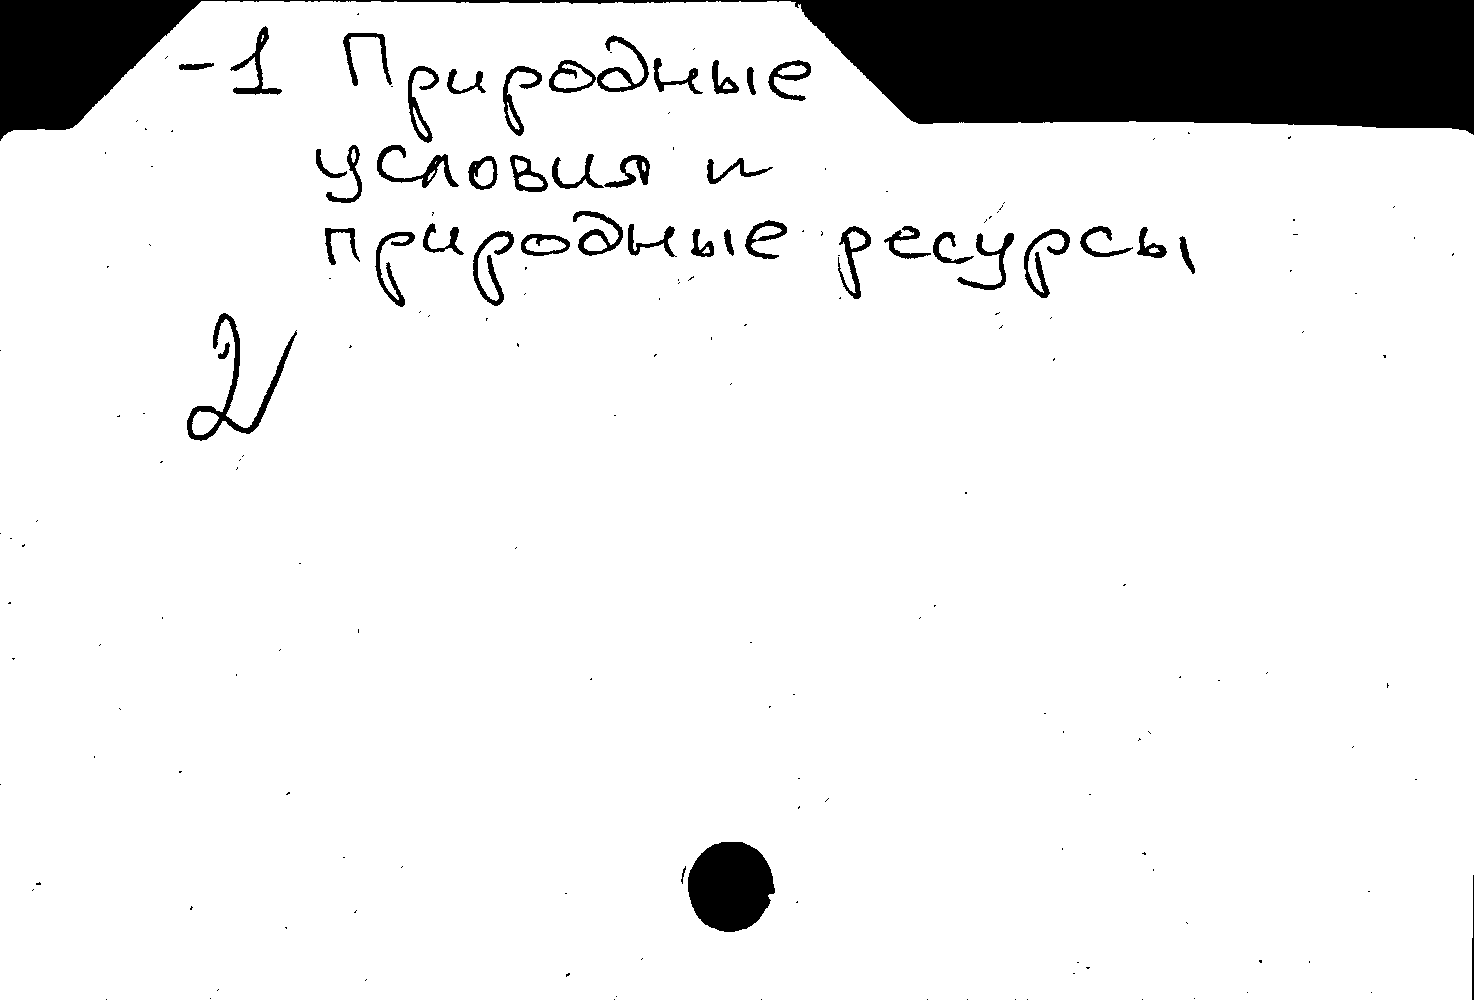 -1 Природные
условия и
природные ресурсы